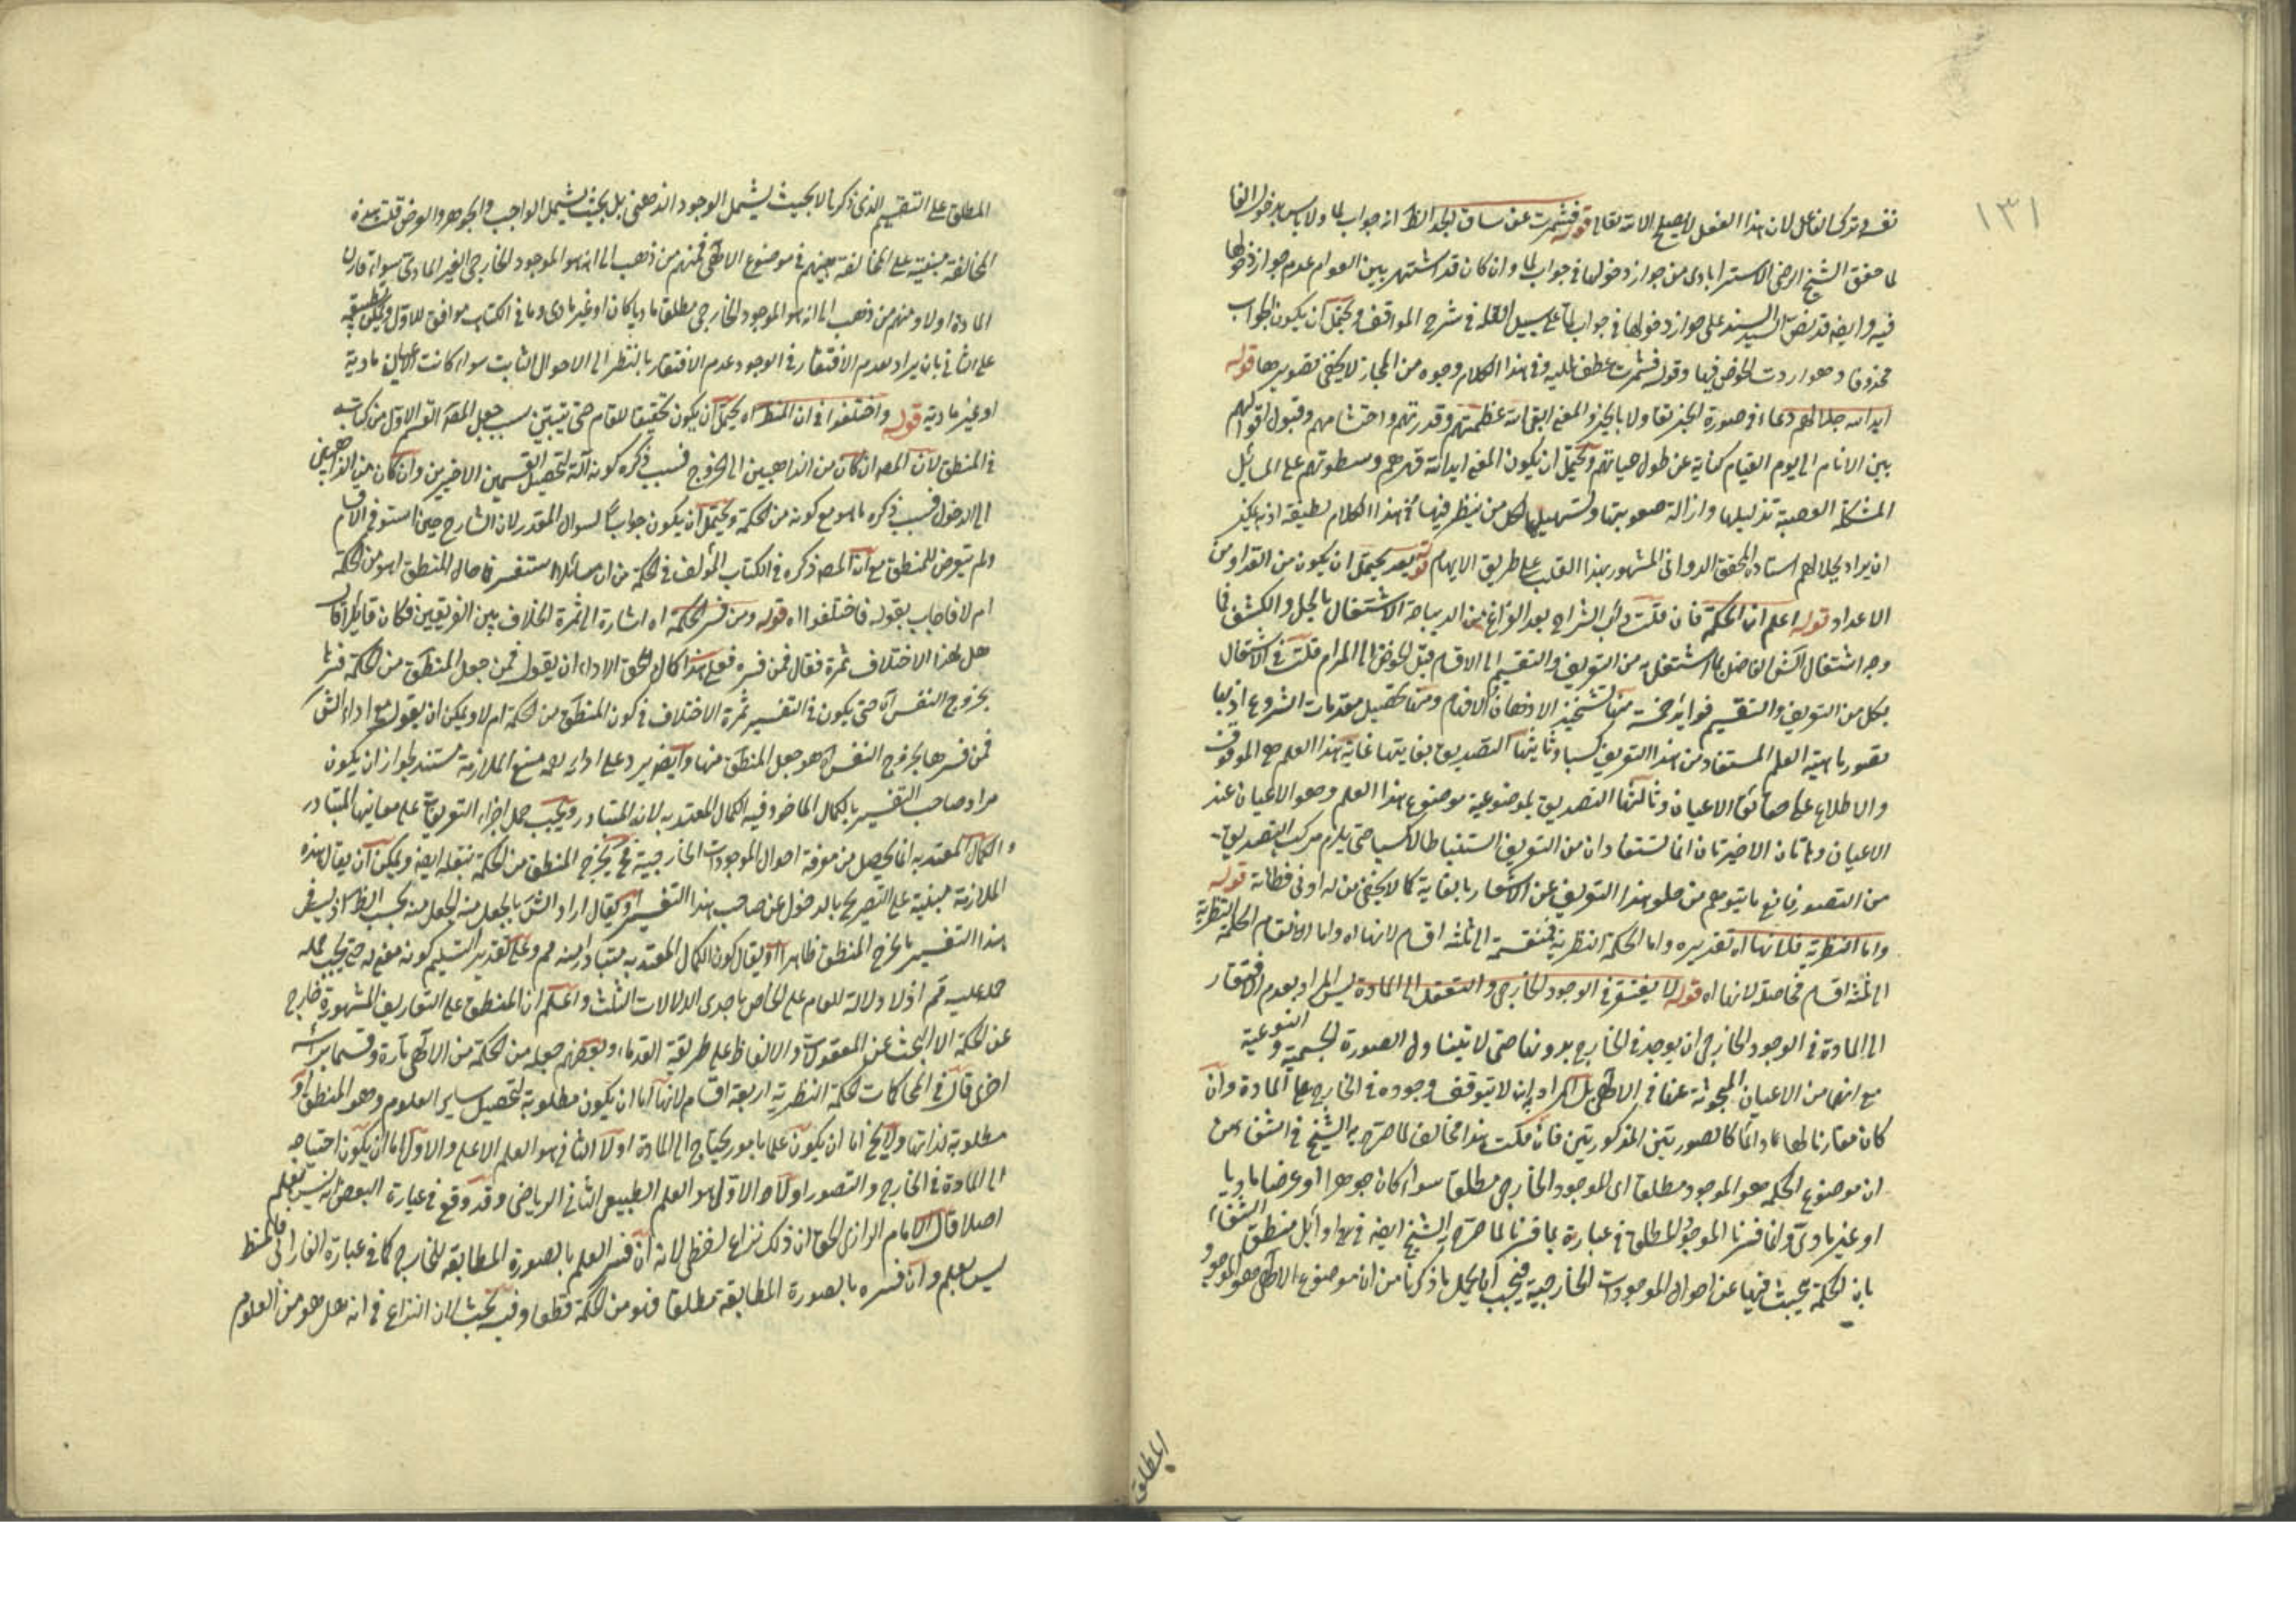 ١٣١
نفسه وترك الفاعل لان هذا الفعل لا يصلح الا لله تعالى قوله فشمرت عن ساق الجد الظ انه جواب لما ولا باس بدخول الفا
لما حقق الشيخ الرضى الاسترابادى من جواز دخولها فى جواب لما وان كان قد اشتهر بين العوام عدم جواز دخولها
فيه وايضه قد نص السيد السند على جواز دخولها فى جواب لما على سبيل القلة فى شرح المواقف ويحتمل ان يكون الجواب
محذوفا وهو اردت الخوض فيها وقوله فشمرت عطف عليه وفى هذا الكلام وجوه من المجاز لا يخفى تصويرها قوله
ايد الله جلالهم دعاء فى صورة الخبر تفاولا بالخير والمعنى ابقى الله عظمتهم وقدرتهم واحتشامهم وقبول اقوالهم
بين الانام الى يوم القيام كناية عن طول حياتهم ويحتمل ان يكون المعنى ايد الله قهرهم وسطوتهم على المسائل
المشكلة الصعبة تذليلها وازالة صعوبتها وتسهيلها لكل من ينظر فيها فى هذا الكلام لطيفة اذ يمكن
ان يراد بجلالهم استاده المحقق الدوانى المشهور بهذا اللقب على طريق الايهام قوله بعد يحتمل ان يكون من العد او من
الاعداد قوله اعلم ان الحكمة فان قلت دأب الشراح بعد الفراغ من الديباجة الاشتغال بالحل والكشف فما
وجه اشتغال الش الفاضل بما اشتغل به من التعريف والتقسيم الى الاقسام قبل الخوض الى المرام قلت فى الاشتغال
بكل من التعريف والتقسيم فوايد خمسة منها تشحيذ الاذهان الافهام ومنها تحصيل مقدمات الشروع اذ بها
تصور ماهية العلم المستفاد من هذا التعريف كسبا وثانيتها التصديق بغايتها غاية هذا العلم هى الموقوف
والاطلاع على حقائق الاعيان وثالثتها التصديق بموضوعية موضوع هذا العلم وهو الاعيان عند
الاعيان وهاتان الاخيرتان انما تستفادان من التعريف استنباطا لا كسبا حتى يلزم مركب التصديق
من التصور فاندفع ما يتوهم من خلو هذا التعريف عن الاشعار بالغاية كما لا يخفى من له ادنى فطانة قوله
واما النظرية فلانها اه تقديره واما الحكمة النظرية فمنقسمة الى ثلثة اقسام لانها اه واما الانقسام الحكمة النظرية
الى ثلثة اقسام فحاصلة لانها اه قوله لا يفتقر فى الوجود الخارجى والتعقل الى المادة ليس المراد بعدم الافتقار
الى المادة فى الوجود الخارجى ان يوجد فى الخارج بدونها حتى لا يتناول الصورة الجسمية والنوعية
مع انها من الاعيان المبحوثة عنها فى الالهى بل المراد ان لا يتوقف وجوده فى الخارج على المادة وان
كان مقارنا لها دائما كالصورتين المذكورتين فان قلت هذا مخالف لما صرح به الشيخ فى الشفاء من
ان موضوع الحكمة هو الموجود مطلقا اى الموجود الخارجى مطلقا سواء كان جوهرا او عرضا ماديا
او غير مادى وانما فسرنا الموجود المطلق فى عبارة بما فسرنا لما صرح الشيخ ايضه فى اوائل منطق الشفاء
بان الحكمة يبحث فيها عن احوال الموجودات الخارجية فيجب ان يحمل ما ذكرنا من ان موضوع الالهى هو الموجود
المطلق
المطلق على التقسيم الذى ذكرنا لا بحيث يشمل الوجود الذهنى بل بحيث يشمل الواجب والجوهر والعرض قلت هذه
المخالفة مبنية على المخالفة بينهم فى موضوع الالهى فمنهم من ذهب الى انه هو الموجود الخارجى الغير المادى سواء قارن
المادة اولا ومنهم من ذهب الى انه هو الموجود الخارجى مطلقا ماديا كان او غير مادى وما فى الكتاب موافق للاول ويمكن تطبيقه
على الثانى بان يراد بعدم الافتقار فى الوجود عدم الافتقار بالنظر الى الاحوال الثابت سواء كانت الاعيان مادية
او غير مادية قوله واختلفوا فى ان المنطق اه يحتمل ان يكون تحقيقا للمقام حتى يتبين سبب جعل المصه القسم الاول من كتابه
فى المنطق لان المصه ان كان من الذاهبين الى الخروج فسبب ذكره كونه آلة لتحصيل القسمين الاخيرين وان كان من الذاهبين
الى الدخول فسبب ذكره ما هو مع كونه من الحكمة ويحتمل ان يكون جوابا لسوال المقدر لان الشارح حين استوفى الاقسام
ولم يتعرض للمنطق مع ان المصه ذكره فى الكتاب المؤلف فى الحكمة من ان سائلا استفسر فى حال المنطق اهو من الحكمة
ام لا فاجاب بقوله فاختلفوا اه قوله ومن فسر الحكمة اه اشارة الى ثمرة الخلاف بين الفريقين فكان قائلا قال
هل لهذا الاختلاف ثمرة فقال فمن فسره فعلى هذا كان الحق الاداء ان يقول فمن جعل المنطق من الحكمة فسرها
بخروج النفس اه حتى يكون فى التفسير ثمرة الاختلاف فى كون المنطق من الحكمة ام لا ويمكن ان يقول مع اداء الش
فمن فسرها بخروج النفس اه هو جعل المنطق منها وايضه يرد على ادايه لعه منع الملازمة مستند بجواز ان يكون
مراد صاحب التفسير بالكمال الماخوذ فيه الكمال المعتد به لانه المتبادر ويجب حمل اجزاء التعريفات على معانيها المتبادر
والكمال المعتد به انما يحصل من معرفة احوال الموجودات الخارجية فح يخرج المنطق من الحكمة بنقله ايضه ويمكن ان يقال هذه
الملازمة مبنية على التصريح بالدخول عن صاحب هذا التفسير او يقال اراد الش بالجعل منه الجعل منه بحسب الظ اذ ليس فى
هذا التفسير ما يخرج المنطق ظاهرا او يقال كون الكمال المعتد به متبادرا منه مم وعلى تقدير التسليم كونه معنى له حتى يجب حمله
حمله عليه قم اذ لا دلالة للعام على الخاص باحدى الدلالات الثلث واعلم ان المنطق على التعاريف المشهورة خارج
عن الحكمة الا البحث عن المعقولات والالفاظ على طريقة القدماء وبعضهم جعله من الحكمة من الالهى تارة وقسما براسه
اخرى قال فى المحاكمات الحكمة النظرية اربعة اقسام لانها اما ان يكون مطلوبة لتحصيل ساير العلوم وهو المنطق او
مطلوبة لذاتها ولا يخ اما ان يكون علما بامور يحتاج الى المادة اولا الثانى هو العلم الاعلى والاول اما ان يكون احتياجه
الى المادة فى الخارج والتصور اولا والاول هو العلم الطبيعى الثانى الرياضى وقد وقع فى عبارة البعض انه ليس بعلم
اصلا قال الامام الرازى الحق ان ذلك نزاع لفظى لانه ان فسر العلم بالصورة المطابقة للخارج كما فى عبارة الفارابى فالمنطق
ليس بعلم وان فسره بالصورة المطابقة مطلقا فهو من الحكمة قطعا وفيه بحث لان النزاع فى انه هل هو من العلوم